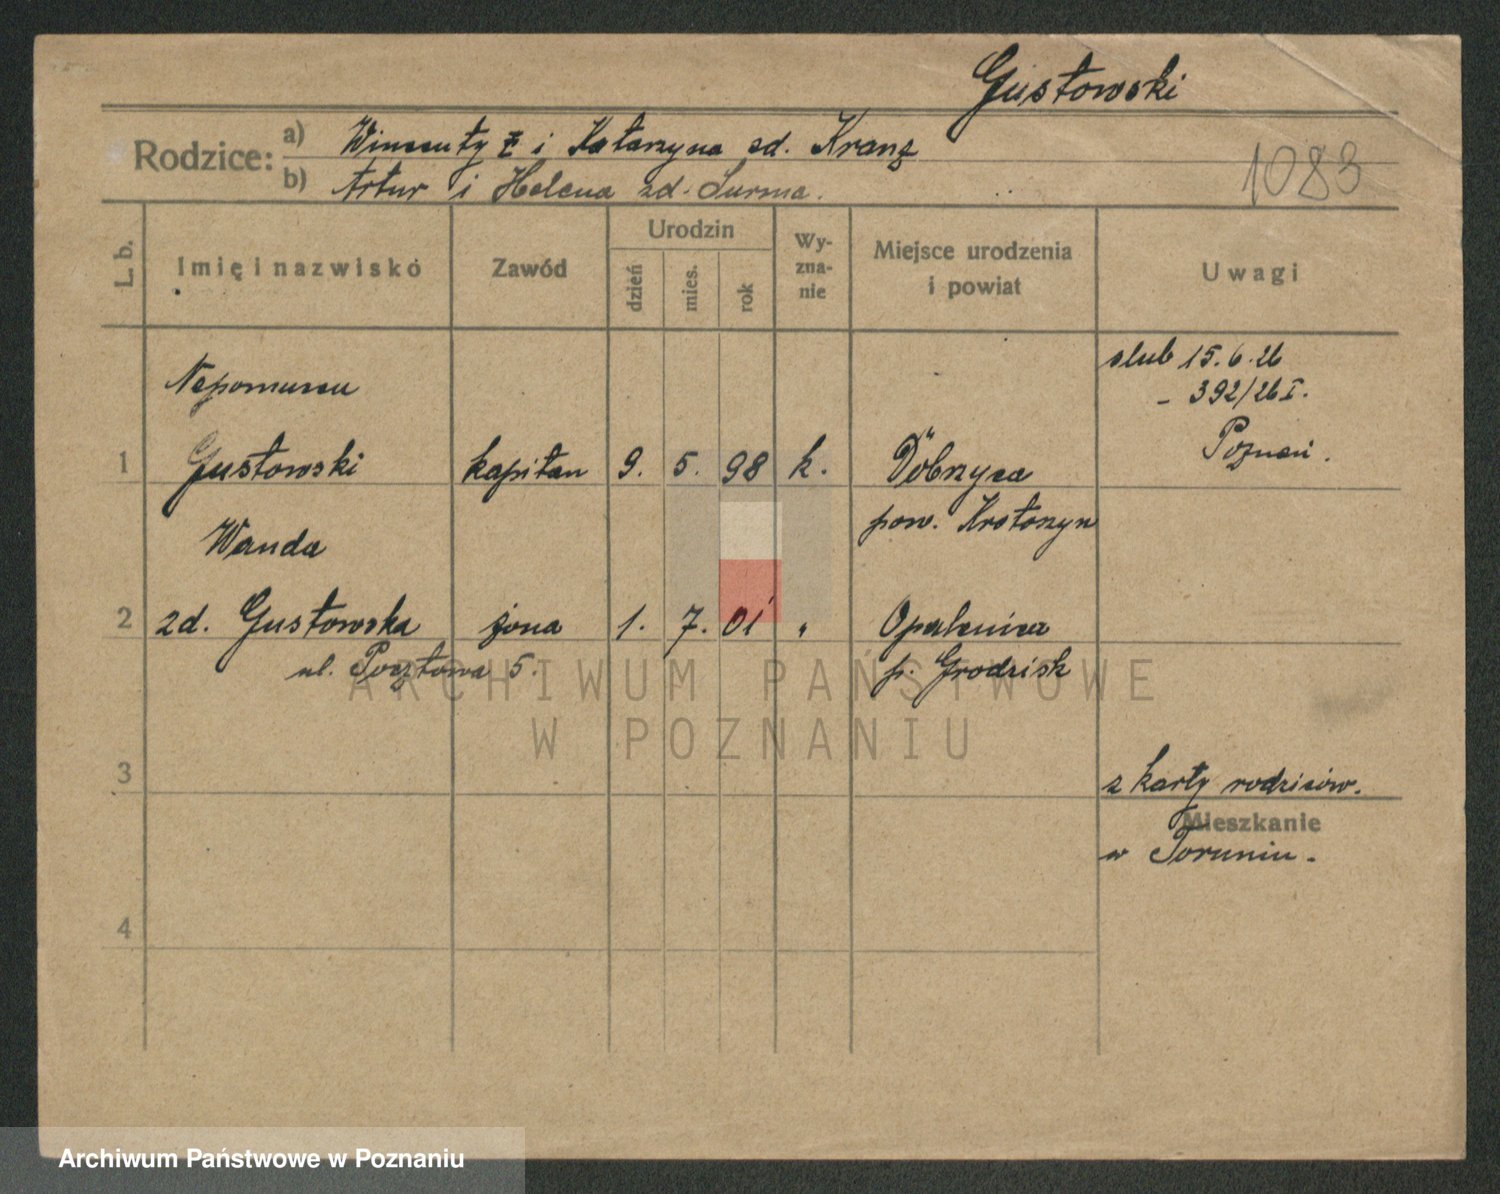 Gustowski
Rodzice: a) Wincenty i Katarzyna zd. Kranz
b) Artur i Helena zd. Surma.
1083
L. b.
Imię i nazwisko
Zawód
Urodzin
dzień
mies.
rok
Wy-
zna-
nie
Miejsce urodzenia
i powiat
Uwagi
slub 15.6.26
- 392/26 I.
Poznań.
Nepomucen
1 Gustowski kapitan 9. 5. 98 k. Dobrzyca
pow. Krotoszyn
Wanda
2 zd. Gustowska żona 1. 7. 01 " Opalenica
ul. Pocztowa 5. p. Grodzisk
ARCHIWUM PAŃSTWOWE
W POZNANIU
3
z karty rodziców.
Mieszkanie
w Toruniu.
4
Archiwum Państwowe w Poznaniu